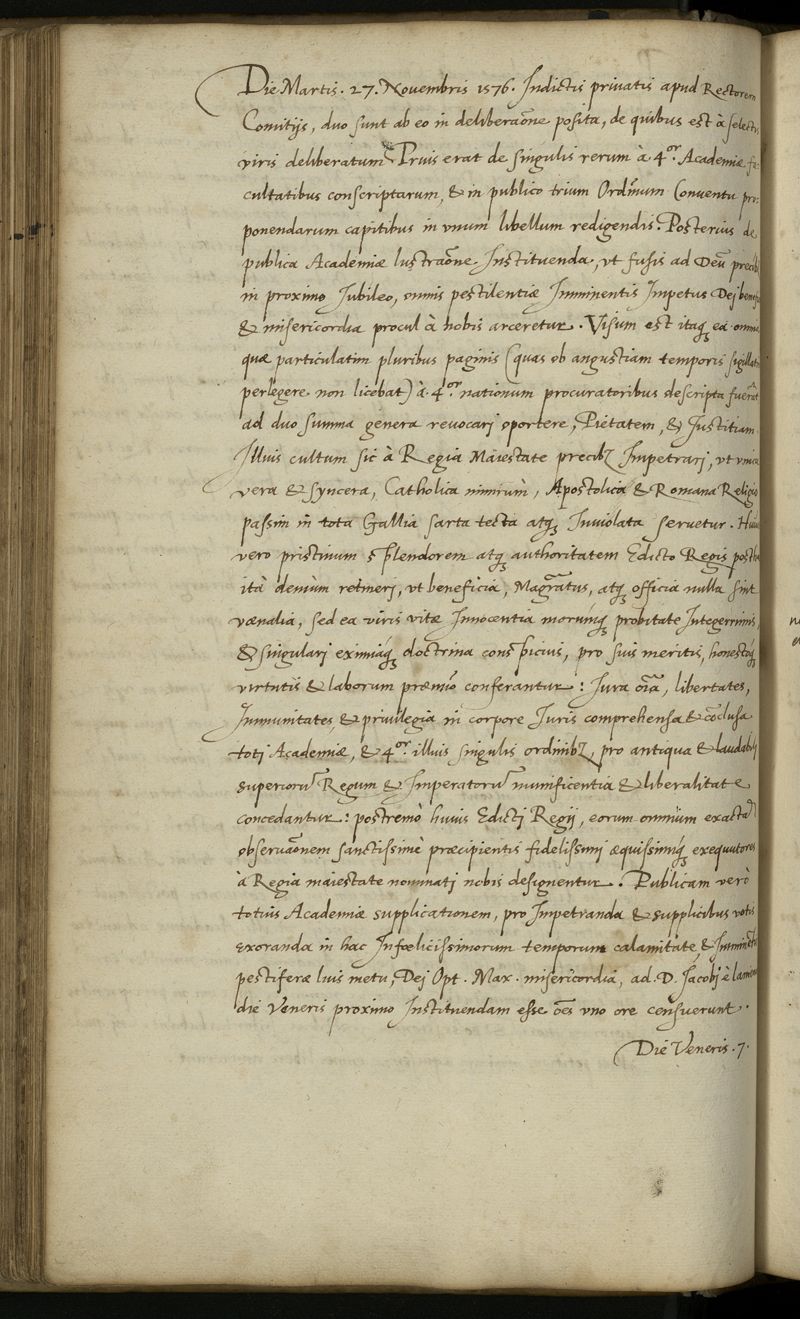 Die Martis. 27. Novembris 1576. Indictis privatis apud Rectorem
Comitijs, duo sunt ab eo in deliberaōne posita, de quibus est à selectis
viris deliberatum. Prius erat de singulis rerum à 4.or Academiæ fa-
cultatibus conscriptarum, & in publico trium Ordinum Conventu pro-
ponendarum capitibus in vnum libellum redigendis. Posterius de
publica Academiæ lustraōne Instituenda, vt fusis ad Deū precib9
in proximo Jubileo, omnis pestilentiæ Imminentis Impetus Dej
& misericordia procul à nobis arceretur. Visum est itaq; ea omnia
quæ particulatim pluribus paginis (quas ob angustiam temporis sigillatī
perlegere non licebat) à 4.or nationum procuratoribus descripta fuerāt
ad duo summa genera revocarj oportere, Pietatem, & Justitiam.
Illius cultum sic à Regia Maiestate precib9 Impetrarj, vt vnica
vera & syncera, Catholica nimirùm, Apostolica & Romana Religio
passim in tota Gallia sarta tecta atq; Inviolata servetur. Huius
vero pristinum splendorem atq; authoritatem Edicto Regis posthac
ità demùm retinerj, vt beneficia, Magrātus, atq; officia nulla sint
vænalia, sed ea viris vitæ Innocentia morumq; probitate Integerrimis,
& singulari eximiaq; doctrina conspicuis, pro suis meritis, honestoq;
virtutis & laborum præmio conferantur: Jura oīa, libertates,
Immunitates, & privilegia in corpore Juris comprehensa & cōclusa
toti Academiæ, & 4.or illius singulis ordinib9, pro antiqua & laudabilj
superiorū Regum & Imperatorū munificentia & liberalitate
concedantur: postremò huius Edicti Regij, eorum omnium exactā
observaōnem sanctissimè præcipientis fidelissimj æquissimiq; exequutores
à Regia maiestate nominatj nobis designentur. Publicam verò
totius Academiæ supplicationem, pro Impetranda & supplicibus votis
exoranda in hac Infœlicissimorum temporum calamitate, & Imminētis
pestiferæ luis metu, Dej Opt. Max. misericordia, ad D. Jacobj è
die Veneris proximo Instituendam esse oēs vno ore censuerunt.
Die Veneris. 7.